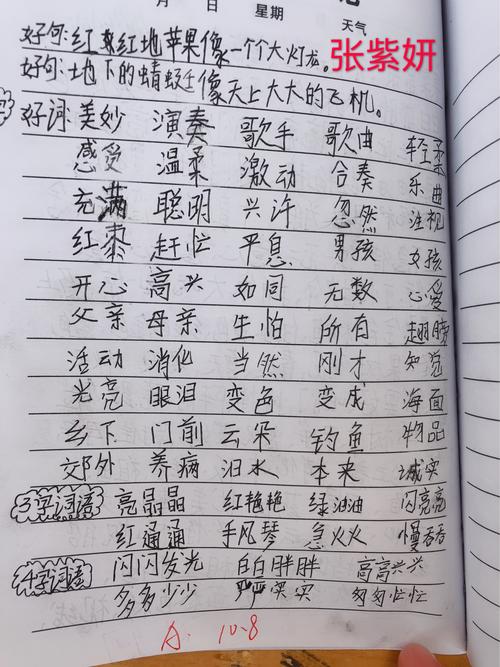 月 日 星期 天气
张紫妍
好句:红红地苹果像一个个大灯龙。
好句:地下的蜻蜓像天上大大的飞机。
好词:美妙 演奏 歌手 歌曲 轻柔
感受 温柔 激动 合奏 乐曲
充满 聪明 兴许 忽然 注视
红枣 赶忙 平息 男孩 女孩
开心 高兴 如同 无数 心爱
父亲 母亲 生怕 所有 翅膀
活动 消化 当然 刚才 知觉
光亮 眼泪 变色 变成 海面
乡下 门前 云朵 钓鱼 物品
郊外 养病 泪水 本来 诚实
3字词语 亮晶晶 红艳艳 绿油油 闪亮亮
红通通 手风琴 急火火 慢吞吞
4字词语 闪闪发光 白白胖胖 高高兴兴
多多少少 严严实实 匆匆忙忙
A. 10-8